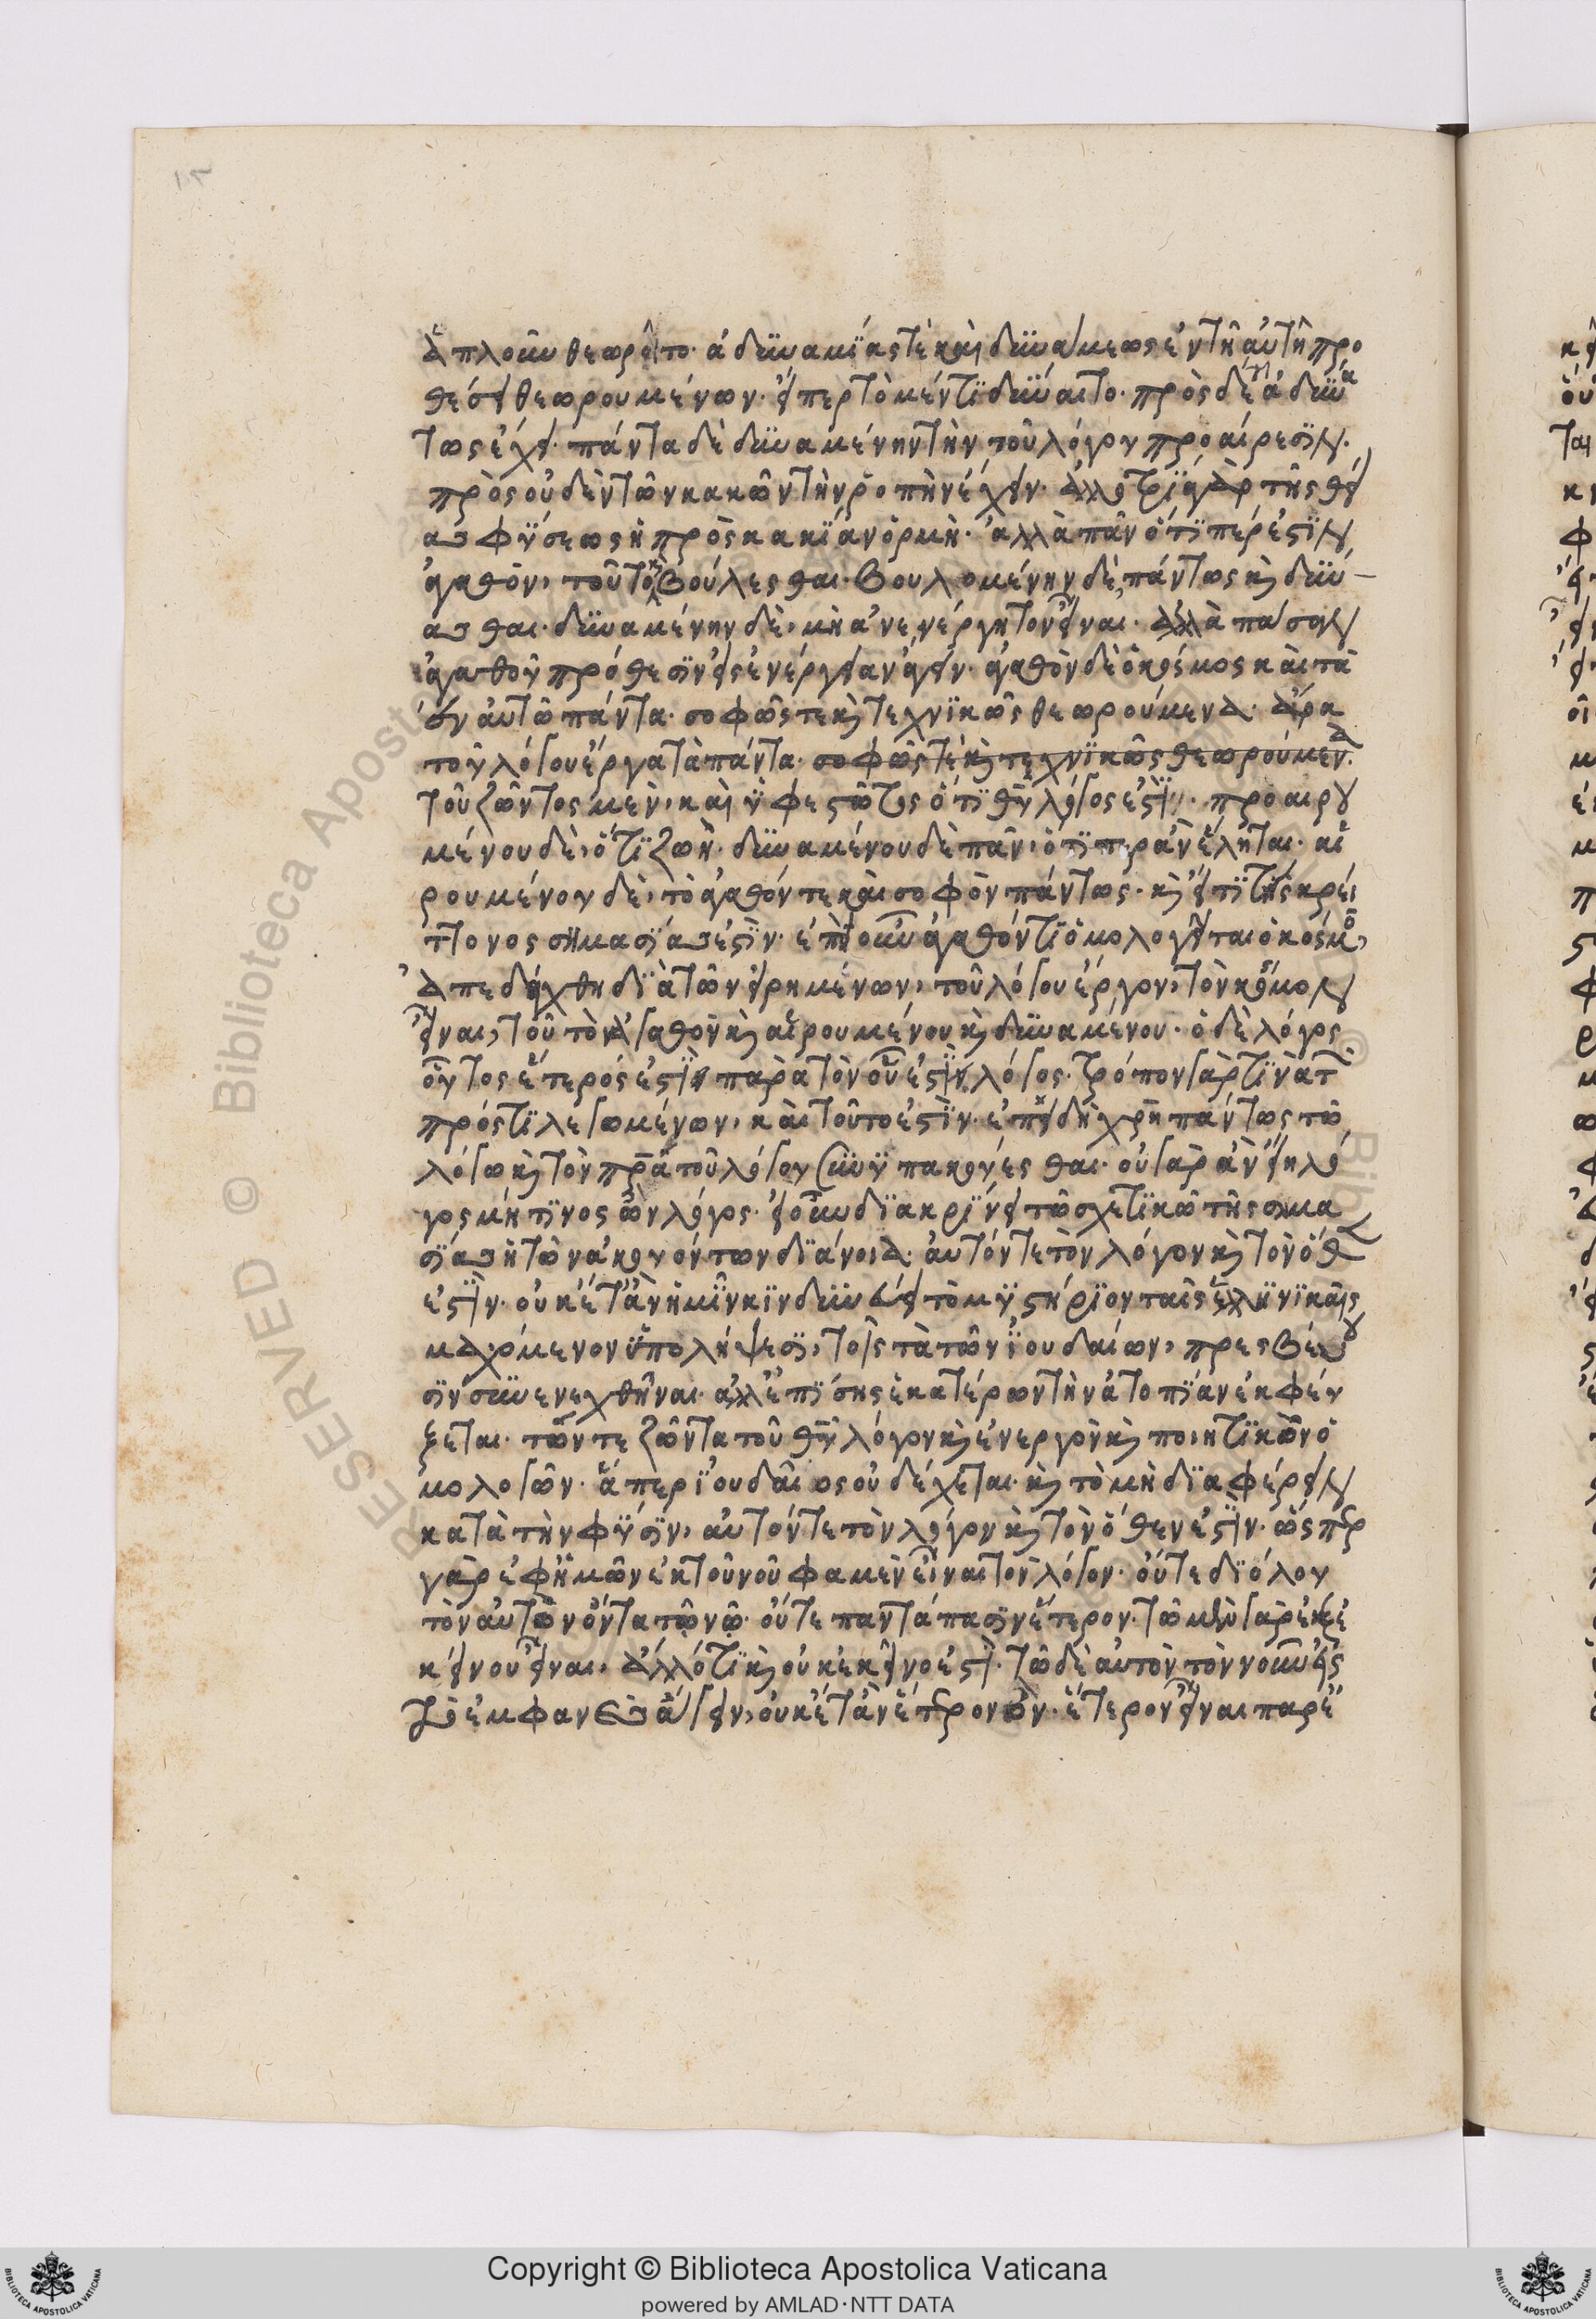 ἁπλοῦν θεωροῖτο· ἀδυναμίας τὲ καὶ δυνάμεως ἐν τῆ αὐτῆ προ
θέσει θεωρουμένων· εἴπερ τὸ μέν τι δύναιτο· πρὸς δέ τι ἀδυνά
τως ἔχει· πάντα δὲ δυναμένην τὴν τοῦ λόγου προαίρεσιν·
πρὸς οὐδὲν τῶν κακῶν τὴν ῥοπὴν ἔχειν· ἀλλοτρία γὰρ τῆς θεί
ας φύσεως ἡ πρὸς κακίαν ὁρμὴ· ἀλλὰ πᾶν ὅτι πέρ ἐστιν
ἀγαθὸν, τοῦτο καὶ βούλεσθαι· βουλομένην δὲ, πάντως καὶ δύν
ασθαι· δυναμένην δὲ, μὴ ἀνενέργητον εἶναι· ἀλλὰ πᾶσαν
ἀγαθοῦ πρόθεσιν εἰς ἐνέργειαν ἄγειν· ἀγαθὸν δὲ ὁ κόσμος καὶ τὰ
ἐν αὐτῶ πάντα· σοφῶς τε καὶ τεχνικῶς θεωρούμενα· ἄρα
τοῦ λόγου ἔργα τὰ πάντα· σοφῶς τὲ καὶ τεχνικῶς θεωρούμενα·
τοῦ ζῶντος μὲν, καὶ ὑφεστῶτος ὅτι θεοῦ λόγος ἐστὶν· προαιρου
μένου δὲ, ὅτι ζωὴ· δυναμένου δὲ πᾶν, ὅτι περ ἂν ἕληται· αἱ
ρουμένου δὲ, τὸ ἀγαθόν τε καὶ σοφὸν πάντως· καὶ εἴ τι τῆς κρεί
ττονος σημασίας ἐστὶν· ἐπεὶ οὖν ἀγαθόν τι ὁμολογεῖται ὁ κόσμος,
ἀπεδείχθη διὰ τῶν εἰρημένων, τοῦ λόγου ἔργον, τὸν κόσμον
εἶναι, τοῦ τὸ ἀγαθὸν καὶ αἱρουμένου καὶ δυναμένου· ὁ δὲ λόγος
οὗτος ἕτερός ἐστὶ παρὰ τὸν οὗ ἐστὶν λόγος· τρόπον γάρ τινα τ
πρός τι λεγωμένων, καὶ τοῦτο ἐστὶν· ἐπειδὴ χρὴ πάντως τῶ
λόγω καὶ τὸν πρα τοῦ λόγου συνυπακούεσθαι· οὐ γὰρ ἂν εἴη λό
γος μή τινος ὢν λόγος· εἰ οὖν διακρίνει τῶ σχετικῶ τῆς σημα
σίας ἡ τῶν ἀκουόντων διάνοια· αὐτόν τε τὸν λόγον καὶ τὸν ὅθεν
ἐστὶν· οὐκέτ' ἂν ἡμῖν κινδυνεύει τὸ μυστήριον ταῖς ἑλληνικαῖς
μαχόμενον ὑπολήψεσι, τοῖς τὰ τῶν ἰουδαίων, πρεσβεύου
σιν συνενεχθῆναι· ἀλλ' ἐπίσης ἑκατέρων τὴν ἀτοπίαν ἐκφεύ
ξεται· τῶν τε ζῶντα τοῦ θεοῦ λόγον καὶ ἐνεργὸν καὶ ποιητικὸν ὁ
μολογῶν· ἅπερ ἰουδαῖος οὐ δέχεται· καὶ τὸ μὴ διαφέρειν
κατὰ τὴν φύσιν, αὐτόν τε τὸν λόγον καὶ τὸν ὅθεν ἐστὶν· ὥσπερ
γὰρ ἐφ' ἡμῶν ἐκ τοῦ νοῦ φαμὲν εἶναι τὸν λόγον· οὔτε δι' ὅλου
τὸν αὐτὸν ὄντα τῶ νῶ· οὔτε παντάπασιν ἕτερον· τῶ μὲν γὰρ ἐξ ἐ
κείνου εἶναι, ἄλλό τι καὶ οὐκ ἐκεῖνο ἐστὶ· τῶ δὲ αὐτὸν τὸν νοῦν εἰς
τὸ ἐμφανὲς ἄγειν, οὐκέτ' ἂν ἕτερον ὂν· ἕτερον εἶναι παρ' ἐ